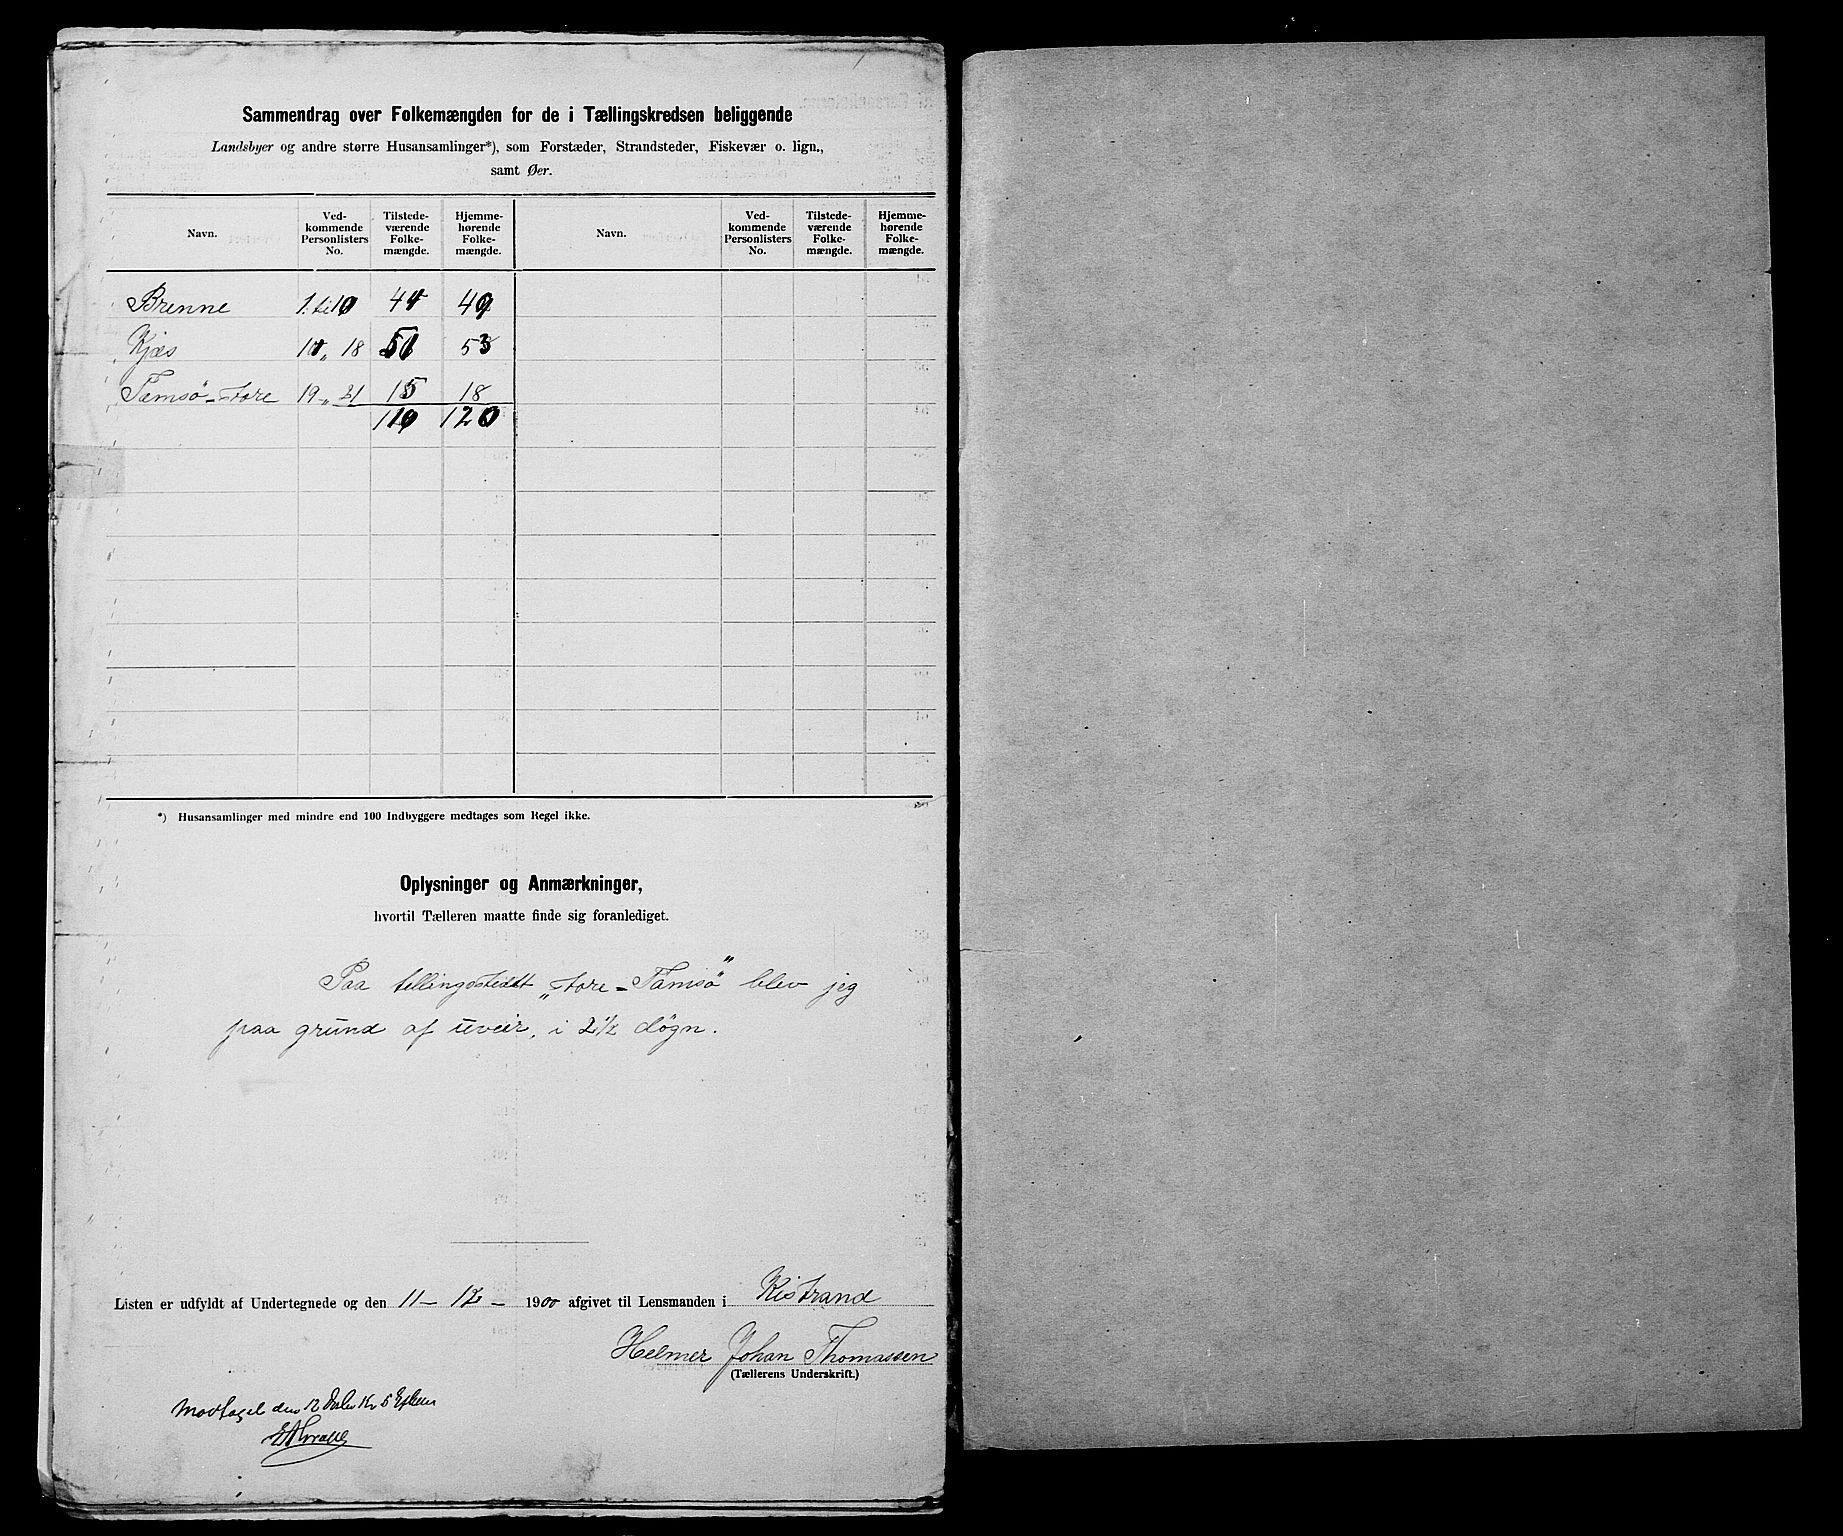 Sammendrag over Folkemængden for de i Tællingskredsen beliggende
Landsbyer og andre større Husansamlinger*), som Forstæder, Strandsteder, Fiskevær o. lign.,
samt Øer.
Navn. Ved-kommende Personlisters No. Tilstede-værende Folke-mængde. Hjemme-hørende Folke-mængde. Navn. Ved-kommende Personlisters No. Tilstede-værende Folke-mængde. Hjemme-hørende Folke-mængde.
Brenne 1. til 10 44 49
Kjæs 11 „ 18 51 53
Tamsø-store 19 „ 21 15 18
110 120
*) Husansamlinger med mindre end 100 Indbyggere medtages som Regel ikke.
Oplysninger og Anmærkninger,
hvortil Tælleren maatte finde sig foranlediget.
Paa tellingsstedt „store-Tamsø" blev jeg
paa grund af uveir, i 2 1/2 døgn.
Listen er udfyldt af Undertegnede og den 11 - 12 - 1900 afgivet til Lensmanden i Kistrand
Helmer Johan Thomassen
(Tællerens Underskrift.)
Modtaget den 12